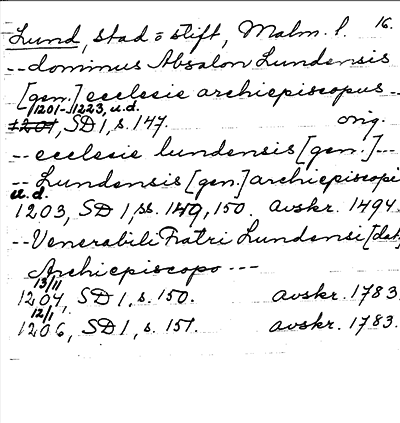 Lund, stad o stift, Malm. l. 16.
-- dominus Absalon Lundensis
[gen.] ecclesie archiepiscopus --
1201-1223, u.d.
1201, SD 1, s. 147. orig.
-- ecclesie lundensis [gen.] --
-- Lundensis [gen.] archiepiscopi
u.d.
1203, SD 1, ss. 149, 150. avskr. 1494.
-- Venerabili Fratri Lundensi [dat.]
Archiepiscopo ---
13/11
1204, SD 1, s. 150. avskr. 1783.
12/1
1206, SD 1, s. 151. avskr. 1783.